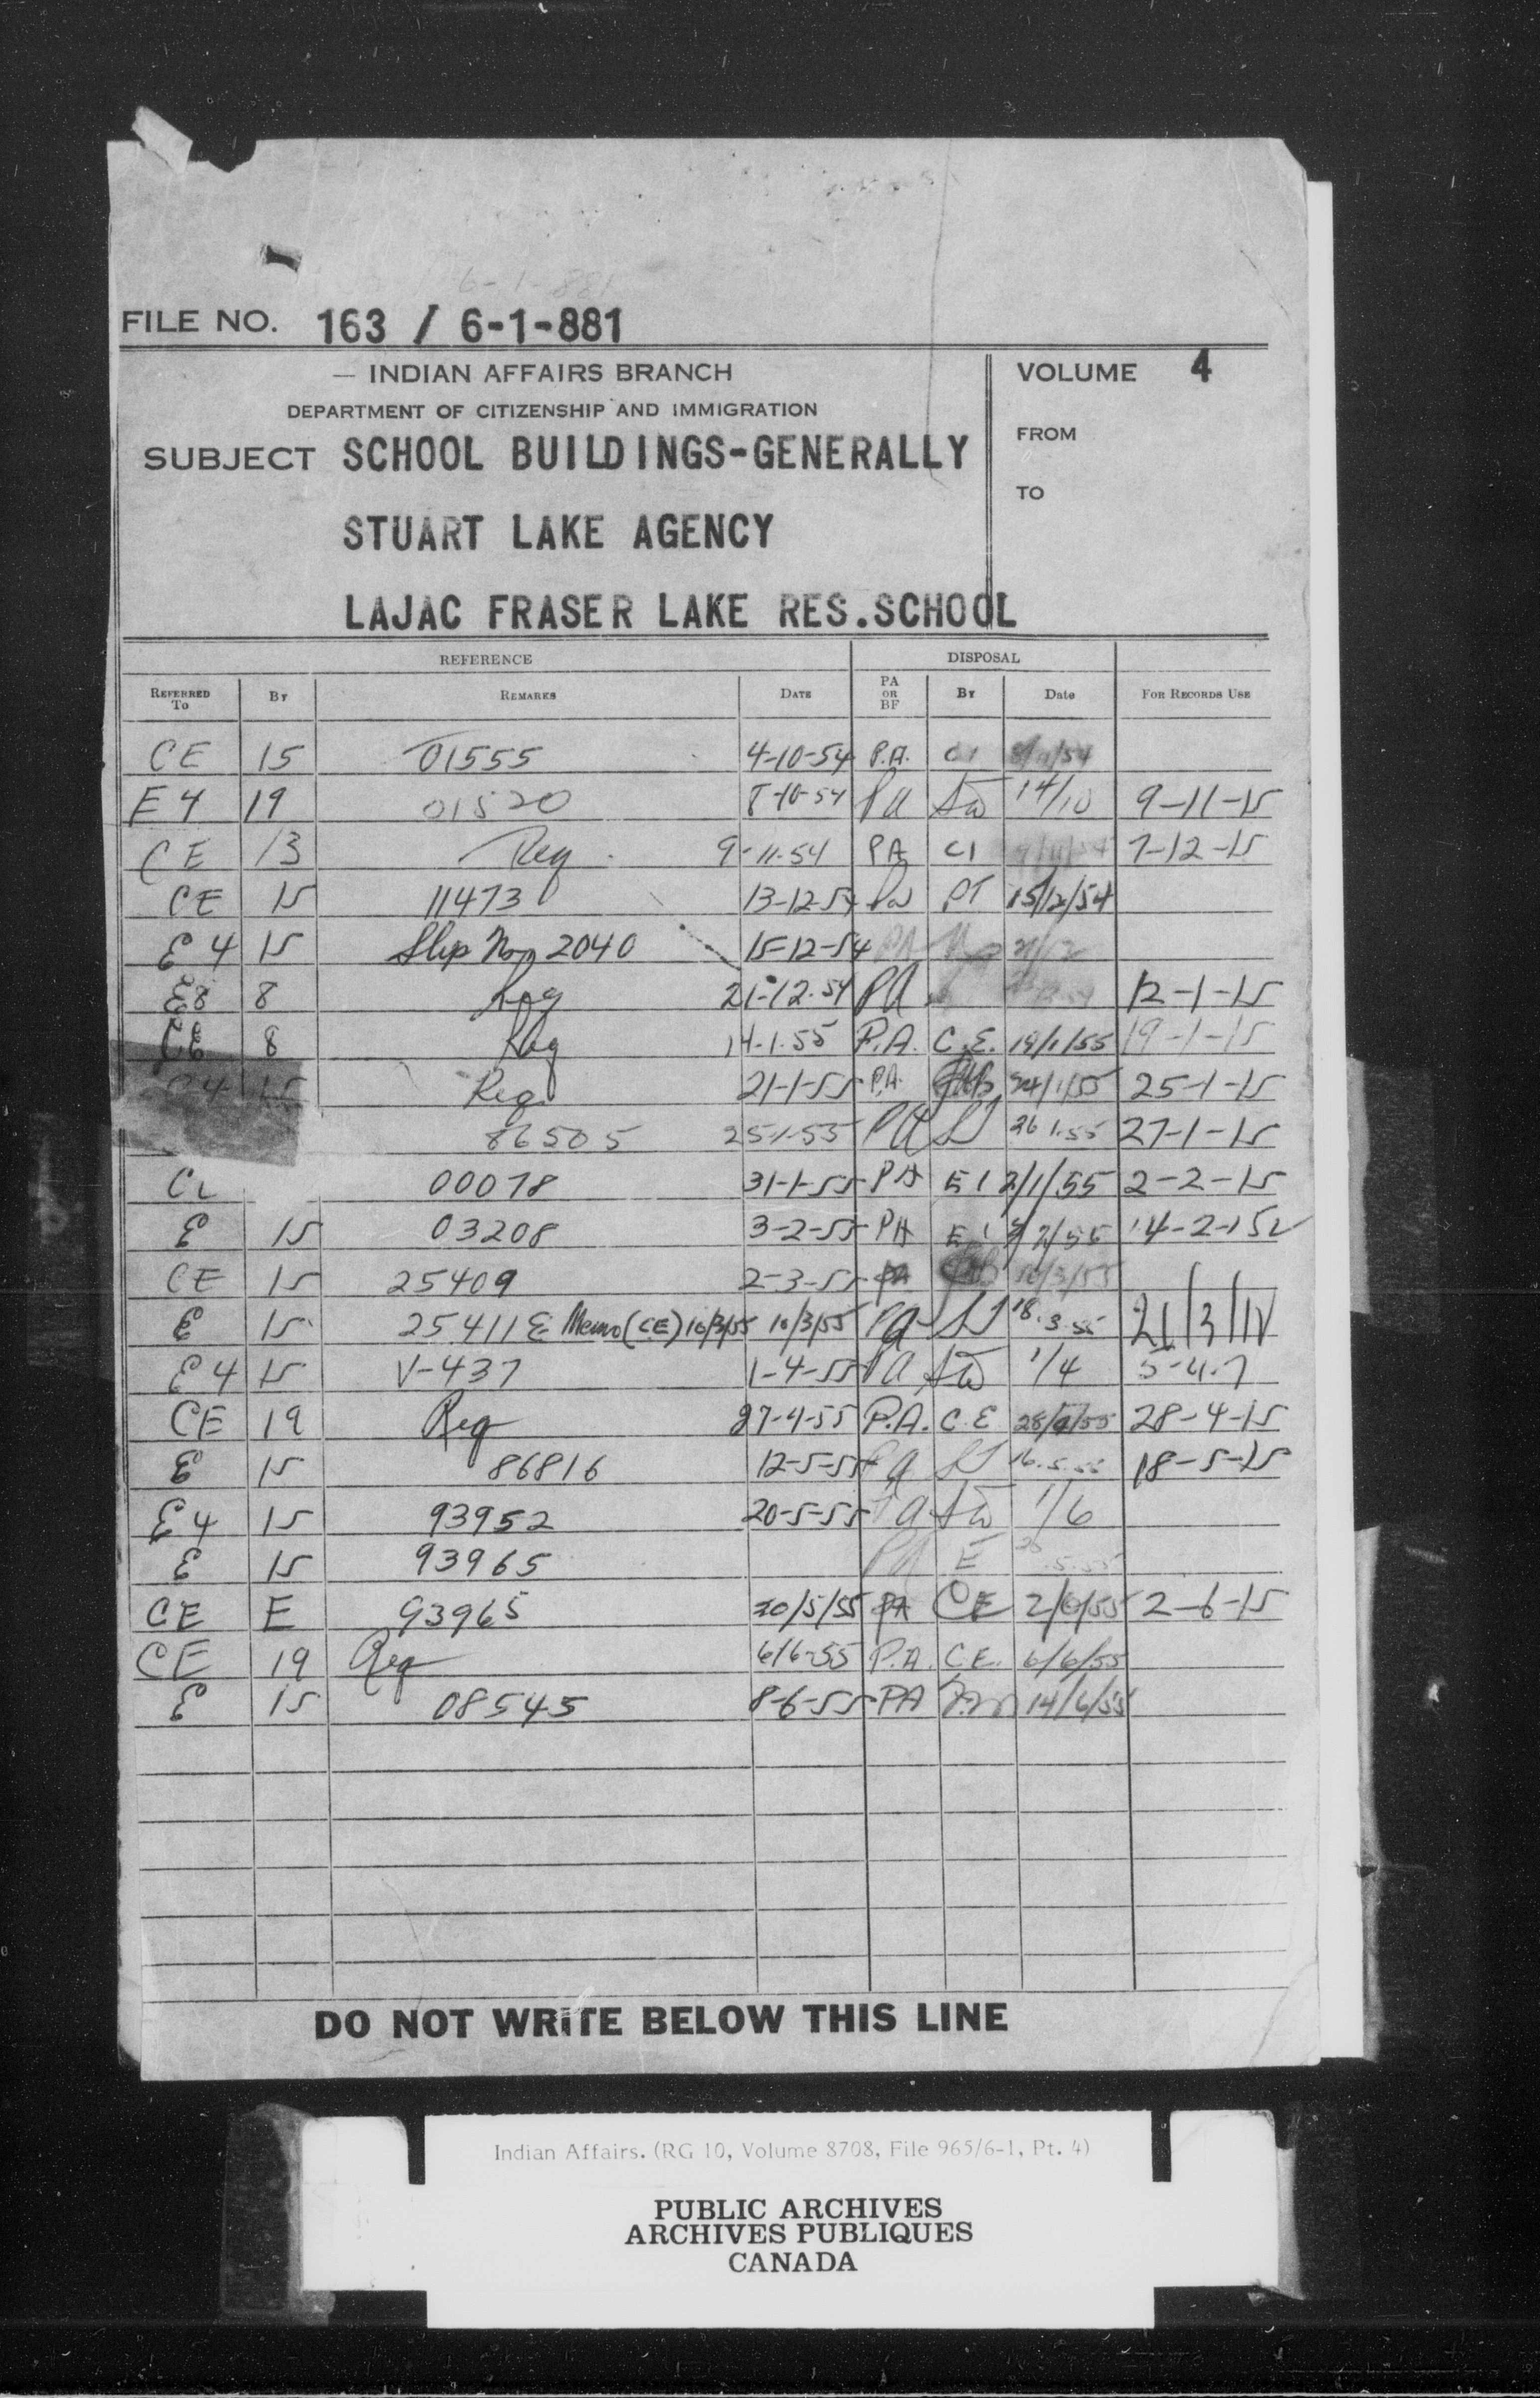 FILE NO. 163 / 6-1-881
— INDIAN AFFAIRS BRANCH
DEPARTMENT OF CITIZENSHIP AND IMMIGRATION
VOLUME 4
FROM
TO
SUBJECT SCHOOL BUILDINGS-GENERALLY
STUART LAKE AGENCY
LAJAC FRASER LAKE RES.SCHOOL
REFERENCE DISPOSAL
REFERRED TO BY REMARKS DATE PA OR BF BY Date FOR RECORDS USE
CE 15 01555 4-10-54 P.A. C1
E 4 19 01520 8-10-54 PA 14/10 9-11-15
CE 13 Req 9-11-54 PA C1 7-12-15
CE 15 11473 13-12-54 PA PT 15/12/54
E 4 15 Slip No 2040 15-12-54 PA 21/12
E8 8 Req 21-12-54 PA 12-1-15
CE 8 Req 14-1-55 P.A. C.E. 19/1/55 19-1-15
Req 21-1-55 P.A. 24/1/55 25-1-15
86505 25-1-55 PA 26 1.55 27-1-15
00078 31-1-55 PA E1 2/1/55 2-2-15
E 15 03208 3-2-55 PA E1 14-2-15
CE 15 25409 2-3-55 PA 16/3/55
E 15 25411 & Memo (CE) 16/3/55 16/3/55 PA 18.3.55
E 4 15 V-437 1-4-55 PA 1/4 5-4-7
CE 19 Req 27-4-55 P.A. C.E 28/4/55 28-4-15
E 15 86816 12-5-55 PA 16.5.55 18-5-15
E 4 15 93952 20-5-55 PA 1/6
E 15 93965 PA E
CE E 93965 20/5/55 PA CE 2/6/55 2-6-15
CE 19 Req 6/6-55 P.A. C.E. 6/6/55
E 15 08545 8-6-55 PA 14/6/55
DO NOT WRITE BELOW THIS LINE
Indian Affairs. (RG 10, Volume 8708, File 965/6-1, Pt. 4)
PUBLIC ARCHIVES
ARCHIVES PUBLIQUES
CANADA